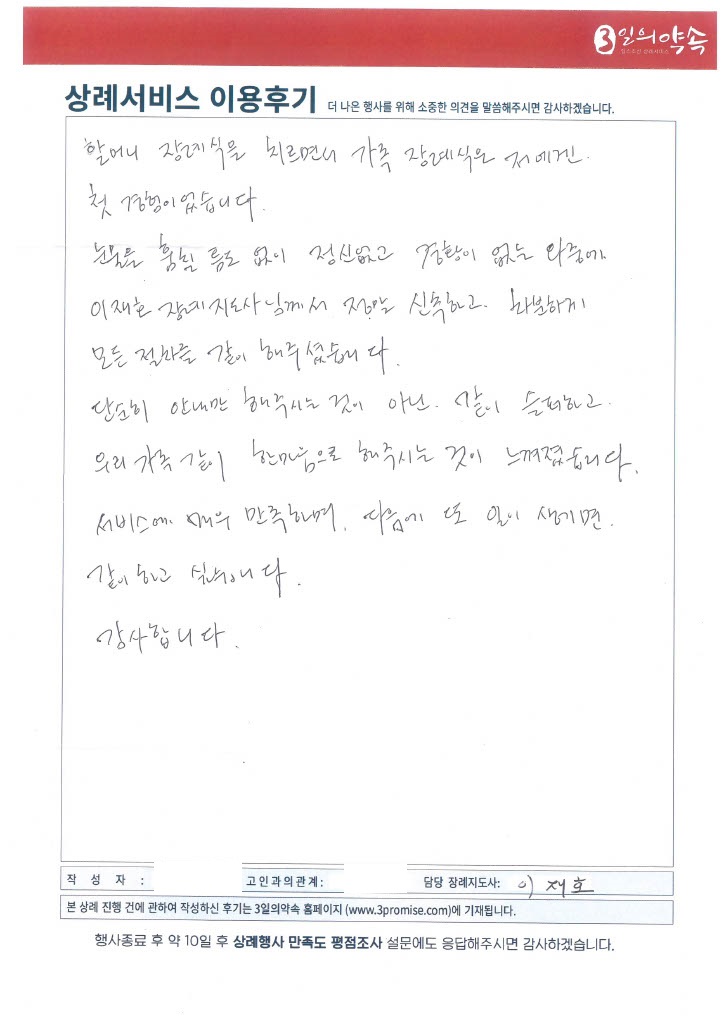 3일의약속
상례서비스 이용후기 더 나은 행사를 위해 소중한 의견을 말씀해주시면 감사하겠습니다.
할머니 장례식을 치르면서 가족 장례식은 저에겐
첫 경험이었습니다.
눈물을 훔칠 틈도 없이 정신없고 경황이 없는 와중에
이재호 장례지도사님께서 정말 신속하고. 차분하게
모든 절차를 같이 해주셨습니다.
단순히 안내만 해주시는 것이 아닌. 같이 슬퍼하고.
우리 가족 같이 한마음으로 해주시는 것이 느껴졌습니다.
서비스에 매우 만족하며, 다음에 또 일이 생기면.
같이 하고 싶습니다.
감사합니다.
작 성 자 : 고인과의관계: 담당 장례지도사: 이재호
본 상례 진행 건에 관하여 작성하신 후기는 3일의약속 홈페이지 (www.3promise.com)에 기재됩니다.
행사종료 후 약 10일 후 상례행사 만족도 평점조사 설문에도 응답해주시면 감사하겠습니다.